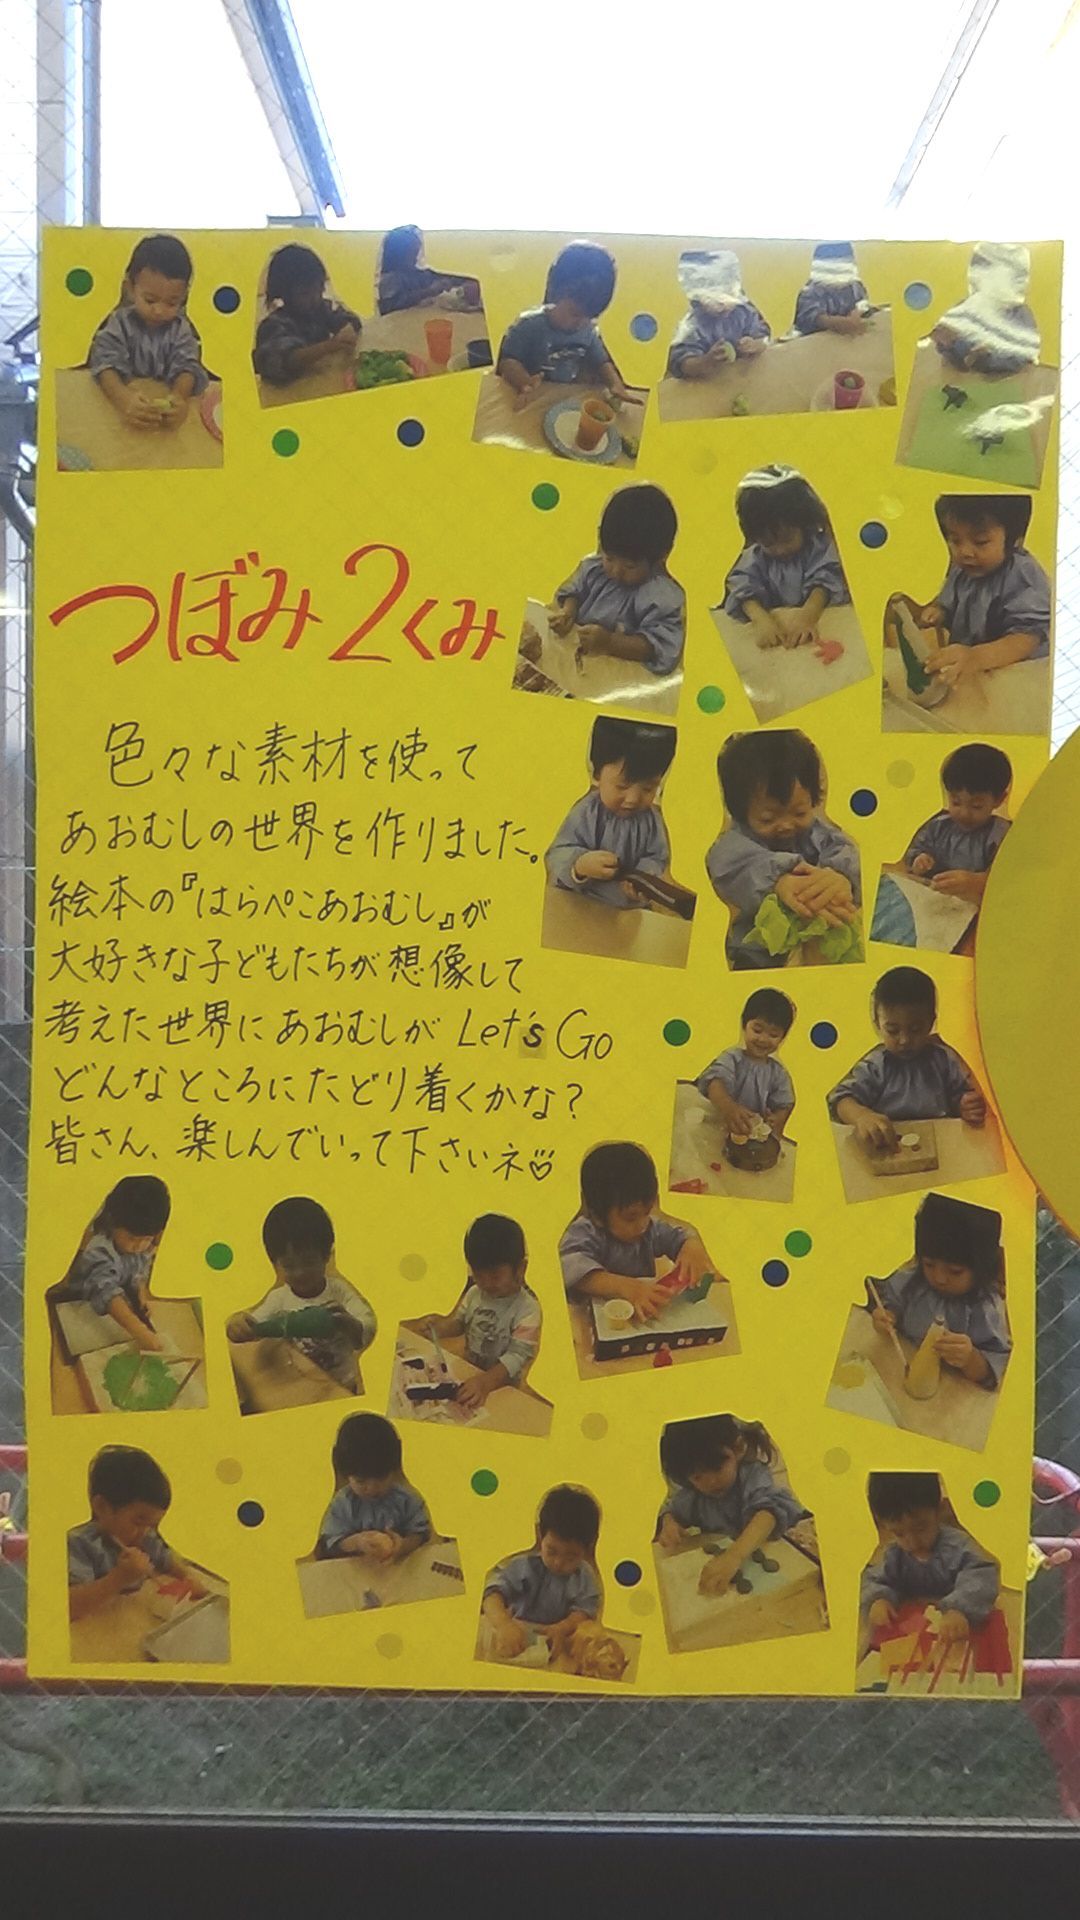 つぼみ2くみ
色々な素材を使って
あおむしの世界を作りました。
絵本の『はらぺこあおむし』が
大好きな子どもたちが想像して
考えた世界にあおむしが Let's Go
どんなところにたどり着くかな?
皆さん、楽しんでいって下さいネ♡